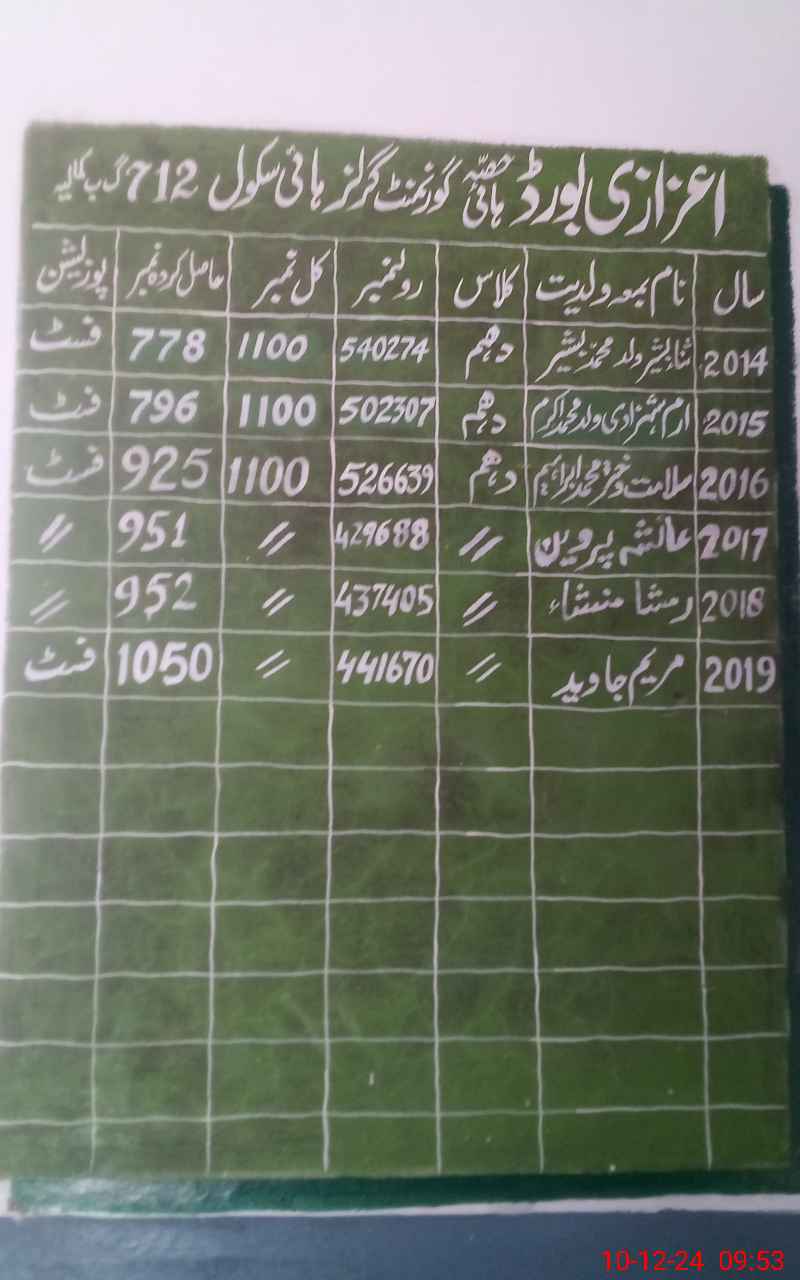 اعزازی بورڈ حصہ ہائی گورنمنٹ گرلز ہائی سکول 712 گ ب کمالیہ
سال نام بمعہ ولدیت کلاس رولنمبر کل نمبر حاصل کردہ نمبر پوزیشن
2014 ثنا بشیر ولد محمد بشیر دہم 540274 1100 778 فسٹ
2015 ارم شہزادی ولد محمد اکرم دہم 502307 1100 796 فسٹ
2016 سلامت دختر محمد ابراہیم دہم 526639 1100 925 فسٹ
2017 عائشہ پروین // 429688 // 951 //
2018 رمشا منشاء // 437405 // 952 //
2019 مریم جاوید // 441670 // 1050 فسٹ
10-12-24 09:53